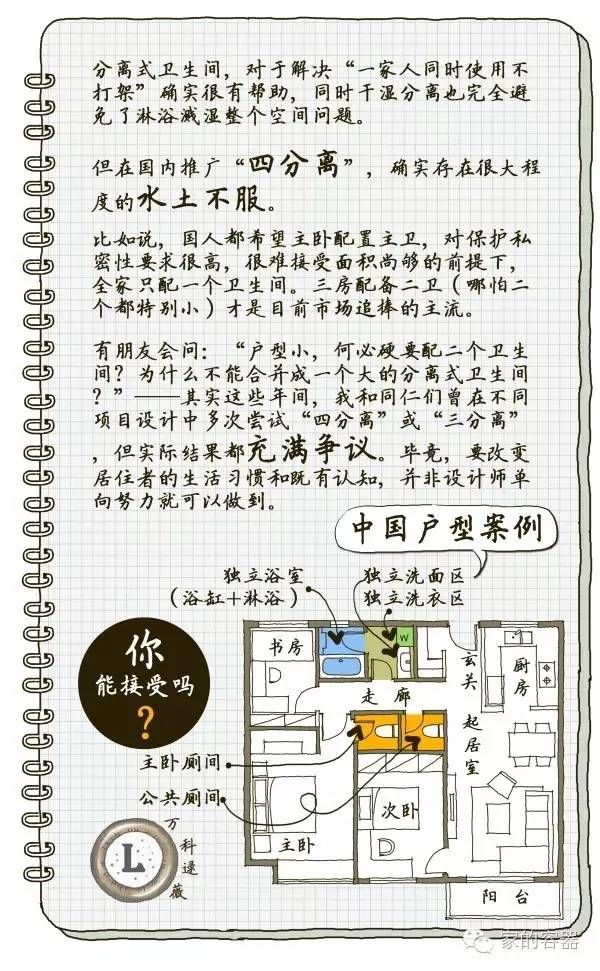 分离式卫生间，对于解决“一家人同时使用不
打架”确实很有帮助，同时干湿分离也完全避
免了淋浴溅湿整个空间问题。
但在国内推广“四分离”，确实存在很大程
度的水土不服。
比如说，国人都希望主卧配置主卫，对保护私
密性要求很高，很难接受面积尚够的前提下，
全家只配一个卫生间。三房配备二卫（哪怕二
个都特别小）才是目前市场追捧的主流。
有朋友会问：“户型小，何必硬要配二个卫生
间？为什么不能合并成一个大的分离式卫生间
？”——其实这些年间，我和同仁们曾在不同
项目设计中多次尝试“四分离”或“三分离”
，但实际结果都充满争议。毕竟，要改变
居住者的生活习惯和既有认知，并非设计师单
向努力就可以做到。
中国户型案例
独立浴室
（浴缸＋淋浴）
独立洗面区
独立洗衣区
你
能接受吗
？
书房
W
走廊
玄关
厨房
起居室
主卧厕间
公共厕间
主卧
次卧
阳台
L
万科逯薇
家的容器